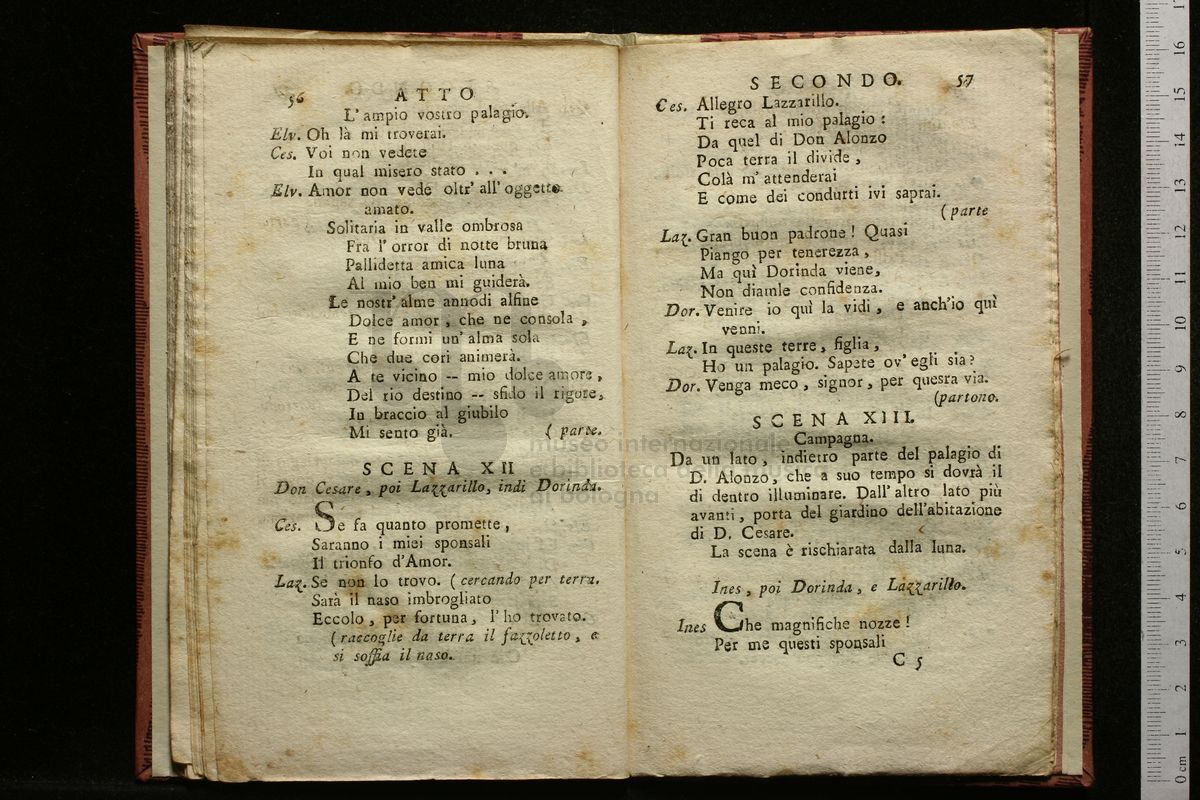 56 ATTO
L' ampio vostro palagio.
Elv. Oh là mi troverai.
Ces. Voi non vedete
In qual misero stato . . .
Elv. Amor non vede oltr' all' oggetto
amato.
Solitaria in valle ombrosa
Fra l' orror di notte bruna
Pallidetta amica luna
Al mio ben mi guiderà.
Le nostr' alme annodi alfine
Dolce amor, che ne consola,
E ne formi un' alma sola
Che due cori animerà.
A te vicino -- mio dolce amore,
Del rio destino -- sfido il rigore,
In braccio al giubilo
Mi sento già. ( parte.
SCENA XII
Don Cesare, poi Lazzarillo, indi Dorinda.
Ces. Se fa quanto promette,
Saranno i miei sponsali
Il trionfo d'Amor.
Laz. Se non lo trovo. ( cercando per terra.
Sarà il naso imbrogliato
Eccolo, per fortuna, l' ho trovato.
( raccoglie da terra il fazzoletto, e
si soffia il naso.
SECONDO. 57
Ces. Allegro Lazzarillo.
Ti reca al mio palagio:
Da quel di Don Alonzo
Poca terra il divide,
Colà m' attenderai
E come dei condurti ivi saprai.
( parte
Laz. Gran buon padrone! Quasi
Piango per tenerezza,
Ma quì Dorinda viene,
Non diamle confidenza.
Dor. Venire io quì la vidi, e anch'io quì
venni.
Laz. In queste terre, figlia,
Ho un palagio. Sapete ov' egli sia?
Dor. Venga meco, signor, per quesra via.
(partono.
SCENA XIII.
Campagna.
Da un lato, indietro parte del palagio di
D. Alonzo, che a suo tempo si dovrà il
di dentro illuminare. Dall' altro lato più
avanti, porta del giardino dell'abitazione
di D. Cesare.
La scena è rischiarata dalla luna.
Ines, poi Dorinda, e Lazzarillo.
Ines Che magnifiche nozze!
Per me questi sponsali
C 5
museo internazionale
e biblioteca della musica
di bologna
0 cm 1 2 3 4 5 6 7 8 9 10 11 12 13 14 15 16 17